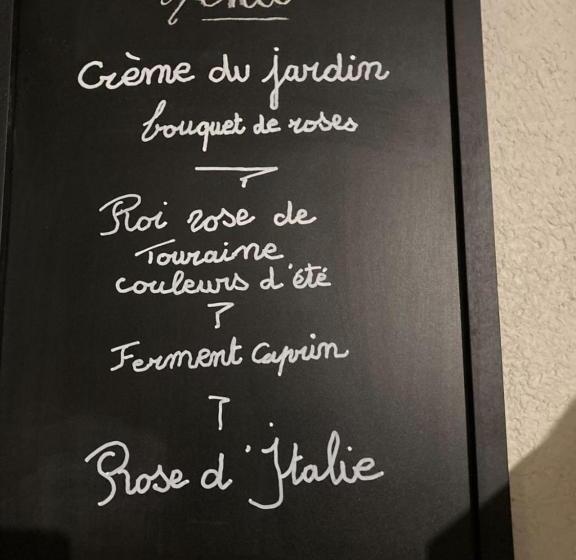 Menu
Crème du jardin
bouquet de roses
Roi rose de
Touraine
couleurs d'été
Ferment Caprin
Rose d'Italie